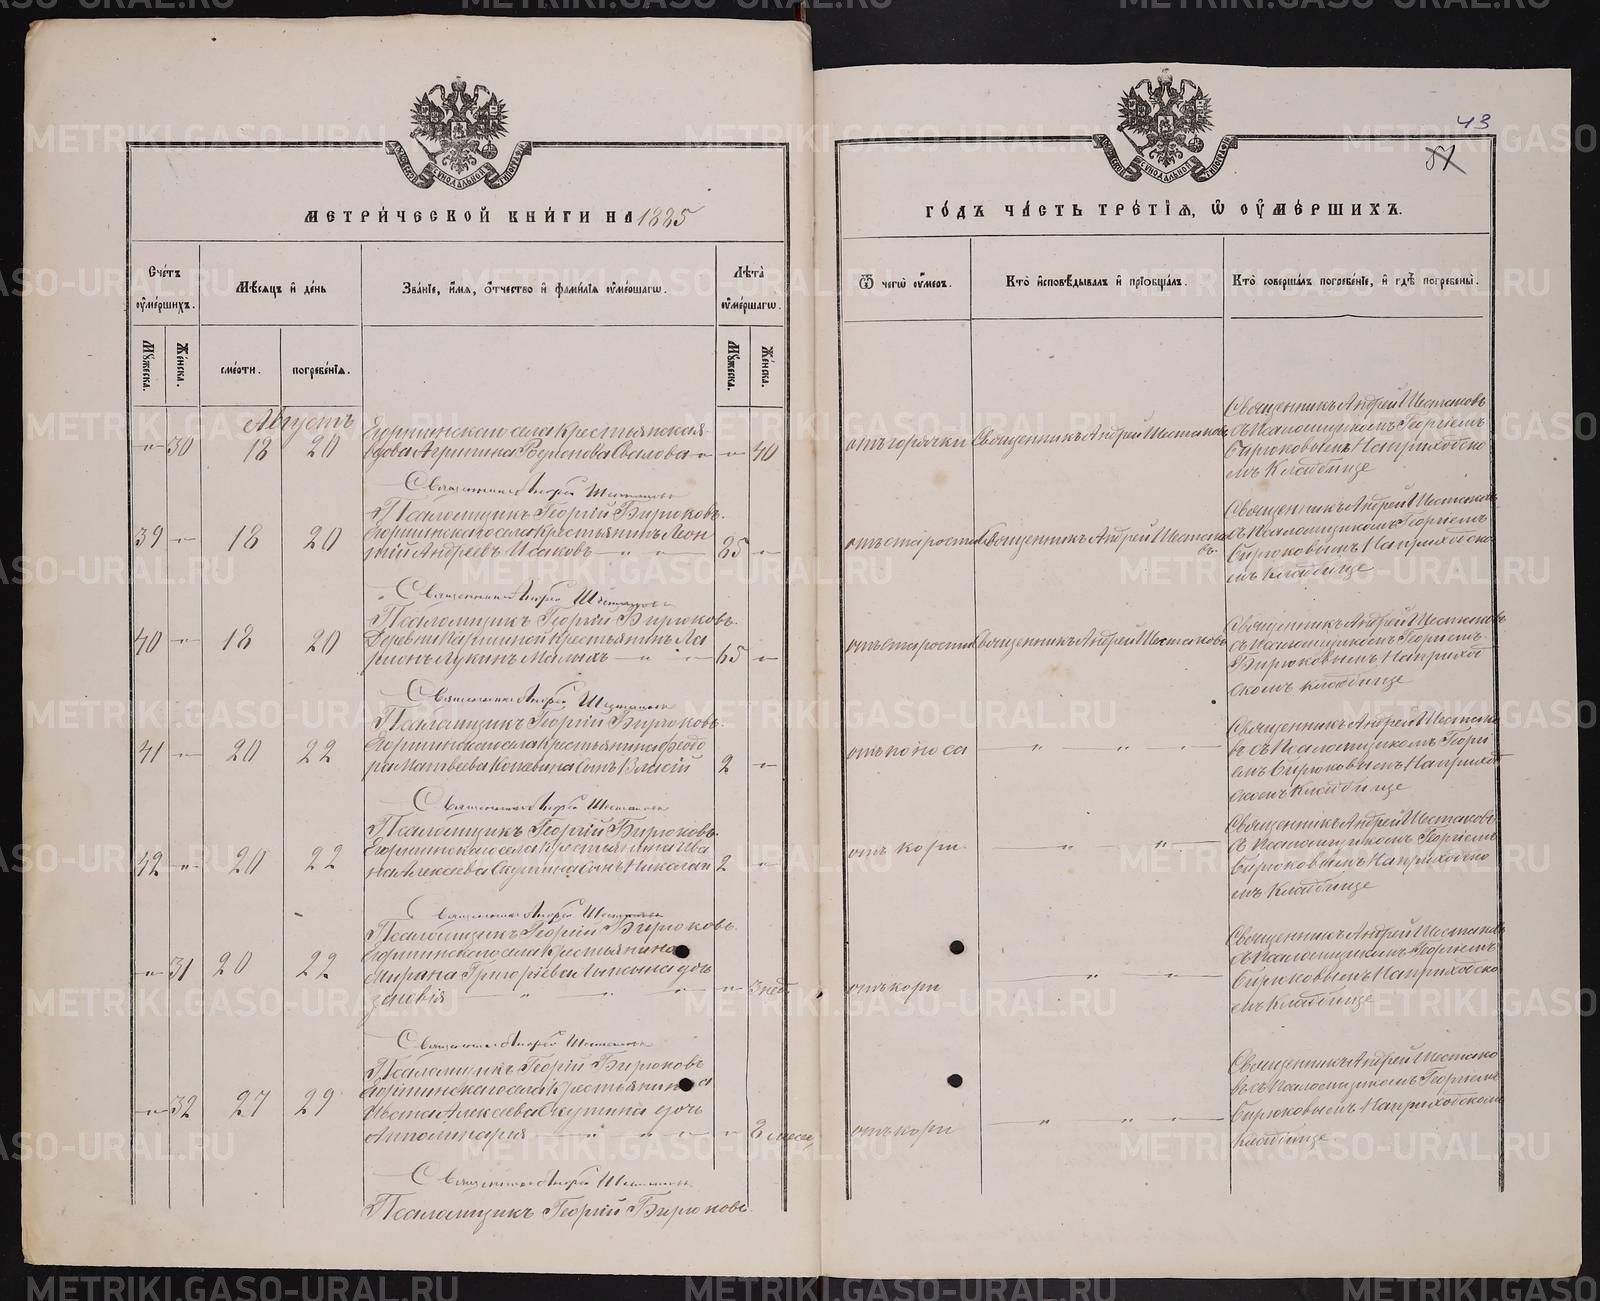 МЕТРИЧЕСКОЙ КНИГИ НА 1885
Счетъ умершихъ.
Мѣсяцъ и день
Званіе, имя, отчество и фамилія умершагѡ.
Лѣта умершагѡ.
Мужеска.
Женска.
смерти.
погребенія.
Мужеска.
Женска.
Августъ
" 30 18 20 Егоршинскаго села крестьянская
вдова Агрипина " " 40
Священникъ Андрей Шестаковъ
Псаломщикъ Георгій Бирюковъ.
39 " 18 20 Егоршинскаго села крестьянинъ Леон
тій Андреевъ Исаковъ " " 85 "
Священникъ Андрей Шестаковъ
Псаломщикъ Георгій Бирюковъ.
40 " 18 20 Деревни крестьянинъ Ла
ріонъ Лукинъ Малыхъ " " 65 "
Священникъ Андрей Шестаковъ
Псаломщикъ Георгій Бирюковъ.
41 " 20 22 Егоршинскаго села крестьянина Ѳеодо
ра Матвѣева сынъ 2 "
Священникъ Андрей Шестаковъ
Псаломщикъ Георгій Бирюковъ.
42 " 20 22 Егоршинскаго села крестьянина Ива
на Алексѣева Скутина сынъ Николай 2 "
Священникъ Андрей Шестаковъ
Псаломщикъ Георгій Бирюковъ.
" 31 20 22 Егоршинскаго села крестьянина
Григорьева дочь
Зиновія " " " " 3 нед.
Священникъ Андрей Шестаковъ
Псаломщикъ Георгій Бирюковъ
" 32 27 29 Егоршинскаго села крестьянина
Ивана Алексѣева Скутина дочь
Апполинарія " " " "
Священникъ Андрей Шестаковъ
Псаломщикъ Георгій Бирюковъ.
43
51
ГОДЪ ЧАСТЬ ТРЕТІЯ, Ѡ УМЕРШИХЪ.
Ѿ чегѡ умеръ.
Кто исповѣдывалъ и пріобщалъ.
Кто совершалъ погребеніе, и гдѣ погребены.
отъ горячки Священникъ Андрей Шестаковъ
Священникъ Андрей Шестаковъ
съ псаломщикомъ Георгіемъ
Бирюковымъ На приходско
мъ кладбище
отъ старости Священникъ Андрей Шестаков
въ.
Священникъ Андрей Шестаковъ
съ псаломщикомъ Георгіемъ
Бирюковымъ На приходско
мъ кладбище
отъ старости Священникъ Андрей Шестаковъ
Священникъ Андрей Шестаковъ
съ псаломщикомъ Георгіемъ
Бирюковымъ На приход
скомъ кладбище
отъ поноса " " "
Священникъ Андрей Шестако
въ съ псаломщикомъ Георгі
емъ Бирюковымъ На приход
скомъ кладбище
отъ кори " "
Священникъ Андрей Шестаковъ
съ псаломщикомъ Георгіемъ
Бирюковымъ На приходско
мъ кладбище
отъ кори " "
Священникъ Андрей Шестаковъ
съ псаломщикомъ Георгіемъ
Бирюковымъ На приходско
мъ кладбище
отъ кори " " "
Священникъ Андрей Шестако
въ съ псаломщикомъ Георгіемъ
Бирюковымъ На приходскомъ
кладбище
METRIKI.GASO-URAL.RU